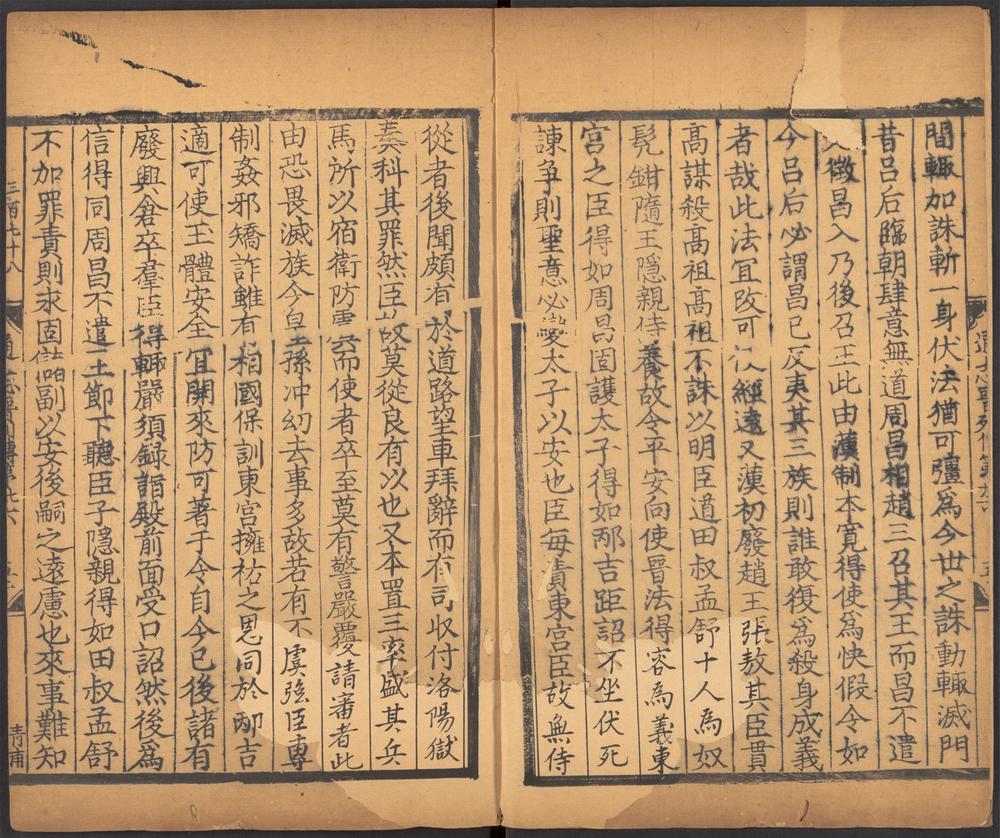 間輙加誅斬一身伏法猶可彊為今世之誅動輙滅門
昔呂后臨朝肆意無道周昌相趙三召其王而昌不遣
徵昌入乃後召王此由漢制本寬得使為快假今如
今呂后必謂昌已反夷其三族則誰敢復為殺身成義
者哉此法冝改可以經遠又漢初廢趙王張敖其臣貫
高謀殺高祖高祖不誅以明臣道田叔孟舒十人為奴
髠鉗隨王隱親侍養故令平安向使晉法得容為義東
宮之臣得如周昌固護太子得如邴吉距詔不坐伏死
諫爭則聖意必變太子以安也臣每責東宮臣故無侍
從者後聞頗有於道路望車拜辭而有司収付洛陽獄
奏科其罪然臣故莫從良有以也又本置三率盛其兵
馬所以宿衛防而使者卒至莫有警嚴覆請審者此
由恐畏滅族今皇孫冲幼去事多故若有不虞強臣専
制姦邪矯詐雖有相國保訓東宮擁祐之恩同於邴吉
適可使王體安全冝開來防可著于令自今已後諸有
廢興倉卒羣臣得輙嚴須録詣殿前面受口詔然後為
信得同周昌不遣王節下聽臣子隱親得如田叔孟舒
不加罪責則永固儲副以安後嗣之遠慮也來事難知
三百七十八
青浦